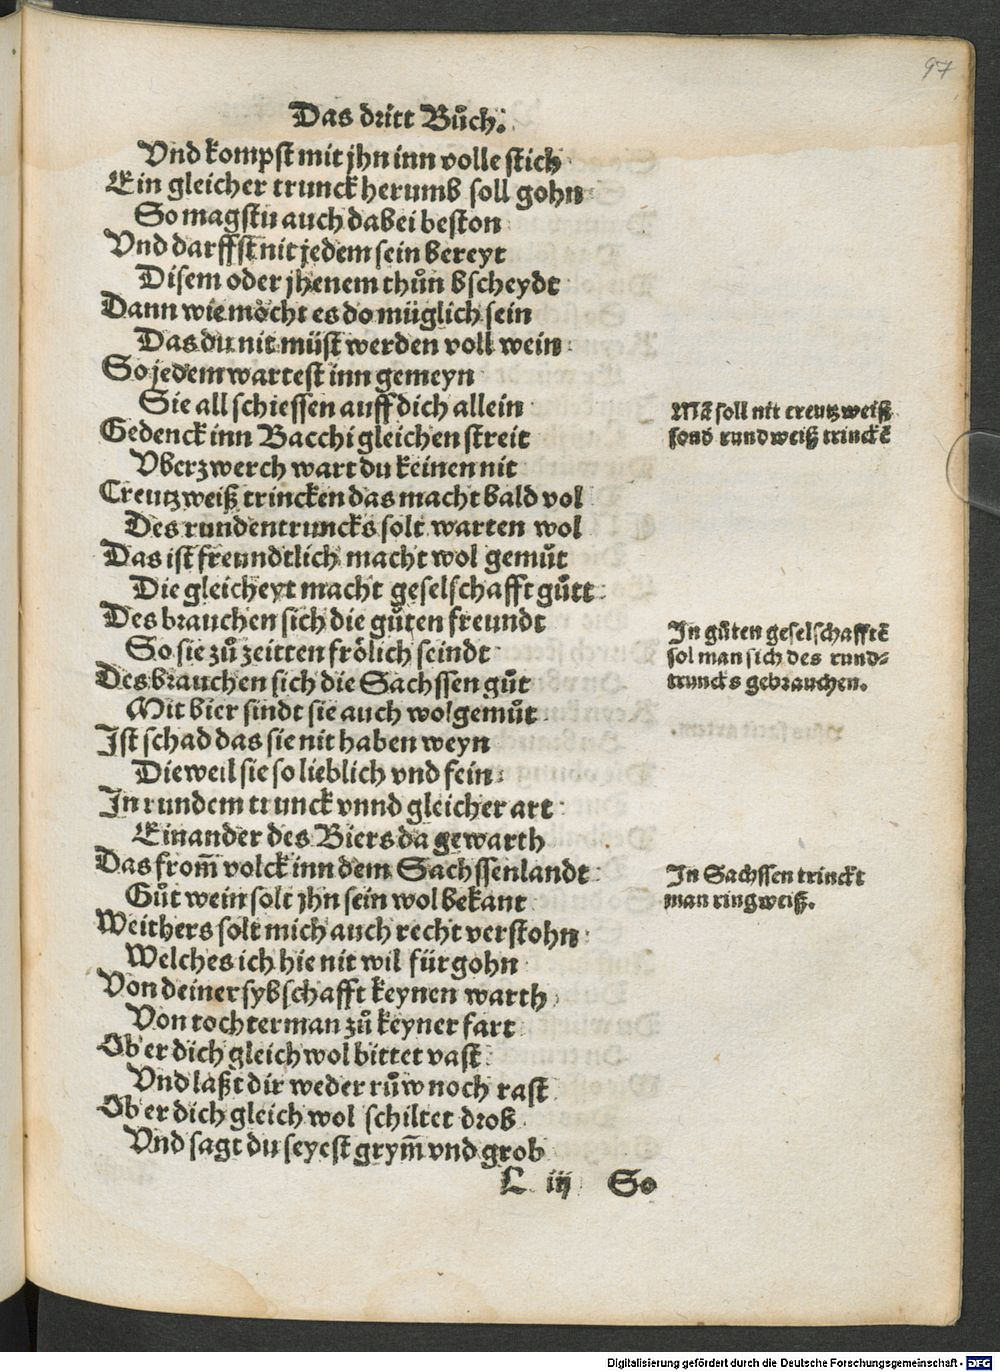 97
Das dritt Bůch.
Vnd kompst mit jhn inn volle stich
Ein gleicher trunck herumb soll gohn
So magstu auch dabei beston
Vnd darffst nit jedem sein bereyt
Disem oder jhenem thůn bscheydt
Dann wie möcht es do müglich sein
Das du nit müst werden voll wein
So jedem wartest inn gemeyn
Sie all schiessen auff dich allein
Gedenck inn Bacchi gleichen streit
Vberzwerch wart du keinen nit
Creutzweiß trincken das macht bald vol
Des rundentruncks solt warten wol
Das ist freundtlich macht wol gemůt
Die gleicheyt macht geselschafft gůtt
Des brauchen sich die gůten freundt
So sie zů zeitten frölich seindt
Des brauchen sich die Sachssen gůt
Mit bier sindt sie auch wolgemůt
Ist schad das sie nit haben weyn
Dieweil sie so lieblich vnd fein
In rundem trunck vnnd gleicher art
Einander des Biers da gewarth
Das from̃ volck inn dem Sachssenlandt
Gůt wein solt jhn sein wol bekant
Weithers solt mich auch recht verstohn
Welches ich hie nit wil fürgohn
Von deiner sybschafft keynen warth
Von tochterman zů keyner fart
Ob er dich gleich wol bittet vast
Vnd laßt dir weder růw noch rast
Ob er dich gleich wol schiltet drob
Vnd sagt du seyest grym̃ vnd grob
L iij So
Mã soll nit creutzweiß
sond rundweiß trinckẽ
In gůten geselschafftẽ
sol man sich des rund-
truncks gebrauchen.
In Sachssen trinckt
man ringweiß.
Digitalisierung gefördert durch die Deutsche Forschungsgemeinschaft - DFG